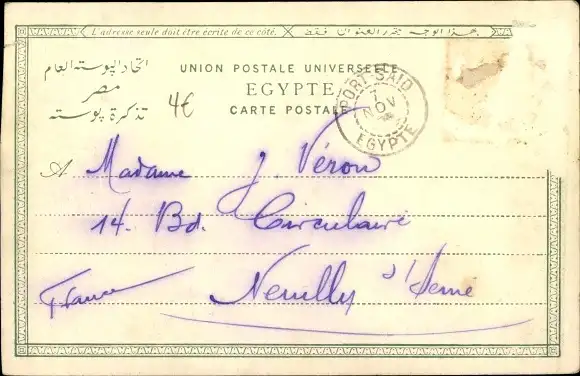 L'adresse seule doit être écrite de ce côté. هذا الوجه يحرر العنوان فقط
اتحاد البوستة العام
مصر
تذكرة بوستة
UNION POSTALE UNIVERSELLE
EGYPTE
CARTE POSTALE
4€
PORT SAID
NOV
EGYPTE
A Madame J. Véron
14. Bd. Circulaire
Neuilly s/Seine
France